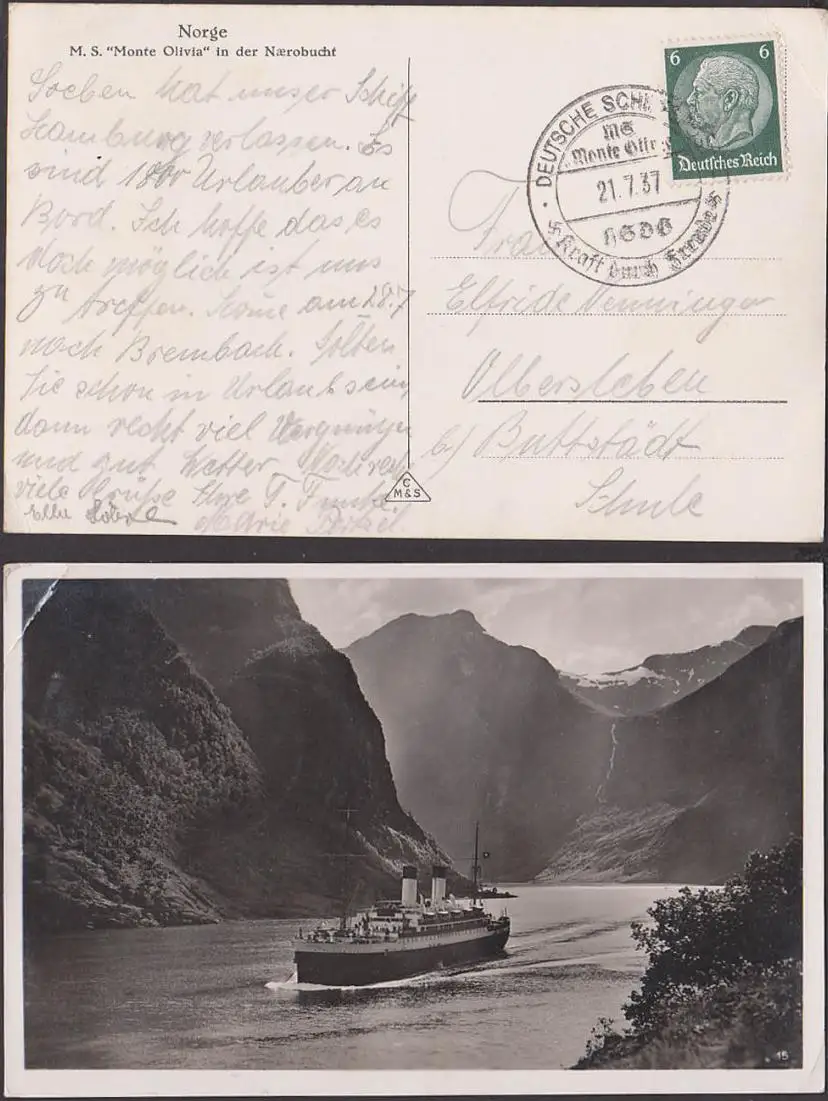 Norge
M. S. "Monte Olivia" in der Nærobucht
Soeben hat unser Schiff
Hamburg verlassen. Es
sind 1800 Urlauber an
Bord. Ich hoffe das es
doch möglich ist uns
zu treffen. Kome am 28.7
nach Brembach. Sollten
Sie schon in Urlaub sein,
dann recht viel Vergnügen
und gut Wetter
viele Grüße Ihre T. Funke.
Marie
C
M&S
6 6
Deutsches Reich
DEUTSCHE
MS
Monte
21.7.37
Kraft durch Freude
Frau
Elfride Nenninger
Olbersleben
b/ Buttstädt
Schule
15